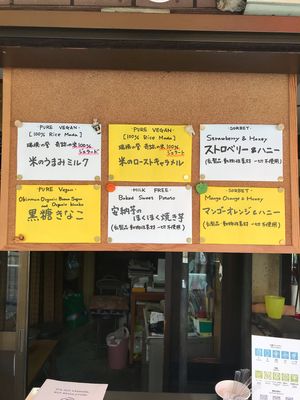 PURE VEGAN
[100% Rice Made]
100%
ジェラート
米のうまみミルク
- PURE VEGAN -
[100% Rice Made]
100%
ジェラート
米のローストキャラメル
- SORBET -
Strawberry & Honey
ストロベリー&ハニー
(乳製品・動物性素材 一切不使用)
- PURE Vegan -
Okinawan Organic Brown Sugar
and Organic kinako
黒糖きなこ
- MILK FREE -
Baked Sweet Potato
安納芋の
ほくほく焼き芋
(乳製品・動物性素材 一切不使用)
- SORBET -
Mango Orange & Honey
マンゴーオレンジ&ハニー
(乳製品・動物性素材 一切不使用)